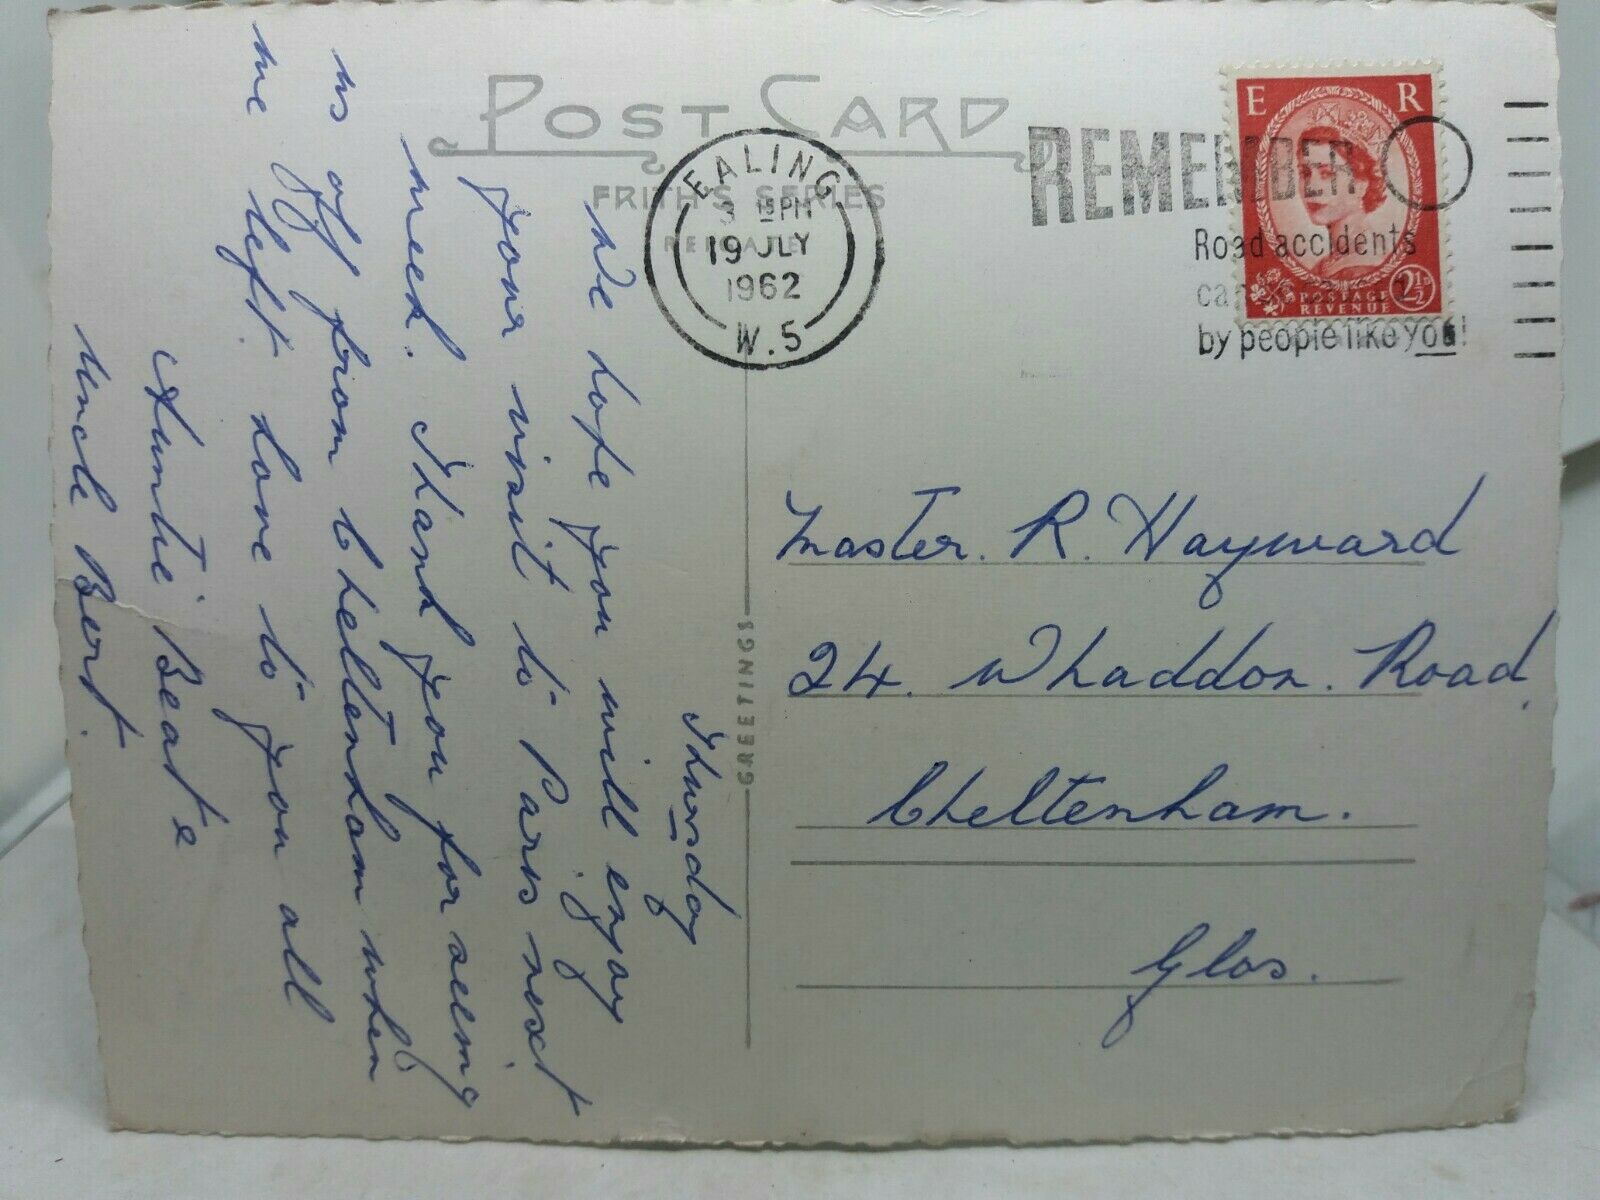 POST CARD
FRITH'S SERIES
REIGATE
EALING
3 15 PM
19 JLY
1962
W.5
REMEMBER
Road accidents
caused
by people like you!
E R
POSTAGE
REVENUE
2½D
GREETINGS
Thursday
We hope you will enjoy
your visit to Paris next
week. Thank you for seeing
us off from Cheltenham when
we left. Love to you all
Auntie Beat &
Uncle Bert.
Master. R. Hayward
24. Whaddon. Road,
Cheltenham.
Glos.